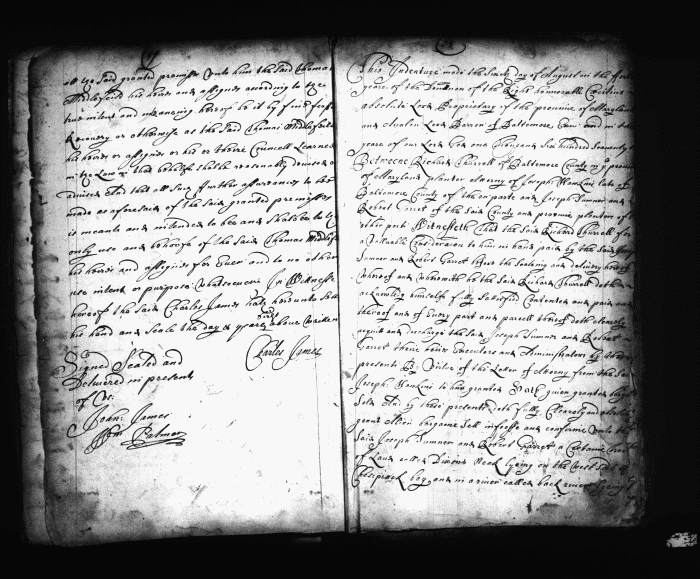 all the said granted premisses unto him the said Thomas
Middlefeild his heirs and assignes according to the
true intent and meaning hereof be it by fine feoffm
Recovery or otherwise as the said Thomas Middlefeild
his heires or assignes or his or theire Councell Learned
in the Law in that behalfe shalbe reasonably devised or
advised And that all such further assurances to be
made as aforesaid of the said granted premisses
is meant and intended to bee and shalbee to ye
only use and behoofe of the said Thomas Middlefe
his heires and assignes for Ever and to no other
use intent or purpose whatsoever In Wittnesse
hereof the said Charles James hath hereunto sett
his hand and seale the day & yeare above written
Charles James
Signed Sealed and
Delivered in presents
of Us.
John: James
Wm Palmer
This Indenture made the day of August in the
yeare of the Dominion of the Right honourable Cecilius
absolute Lord Proprietary of the province of Maryland
and Avalon Lord Barron of Baltemore &c and in the
yeare of our Lord God one thousand six hundred seventy
Betweene Richard Thurrell of Baltemore County in ye provin
of Maryland planter Atorny of Joseph Hawkins late of
Baltemore County of the one parte and Joseph Sumner and
Robert Garrot of the said County and provinc planters of
other part Witnesseth that the said Richard Thurrell for
a Valluable Consideracon to him in hand paid by the said
Sumner and Robert Garrot before the sealing and delivery hereof
whereof and wherewith he the said Richard Thurrell doth
acknowledg himselfe fully satisfied Contented and paid and
thereof and of Every part and parcell thereof doth clearely
acquit and discharge the said Joseph Sumner and Robert
Garrot theire heires Executors and Administrators by these
presents By Vertue of the Letter of Atorny from the said
Joseph Hawkins to him granted Hath given granted
Sold And by these presents doth fully Clearely and
grant Alien bargaine Sell infeoffe and confirme unto the
said Joseph Sumner and Robert Garrot a Certaine
of Land called Dixons Neck lying on the West side of
Chesepiack bay and in a river called back river